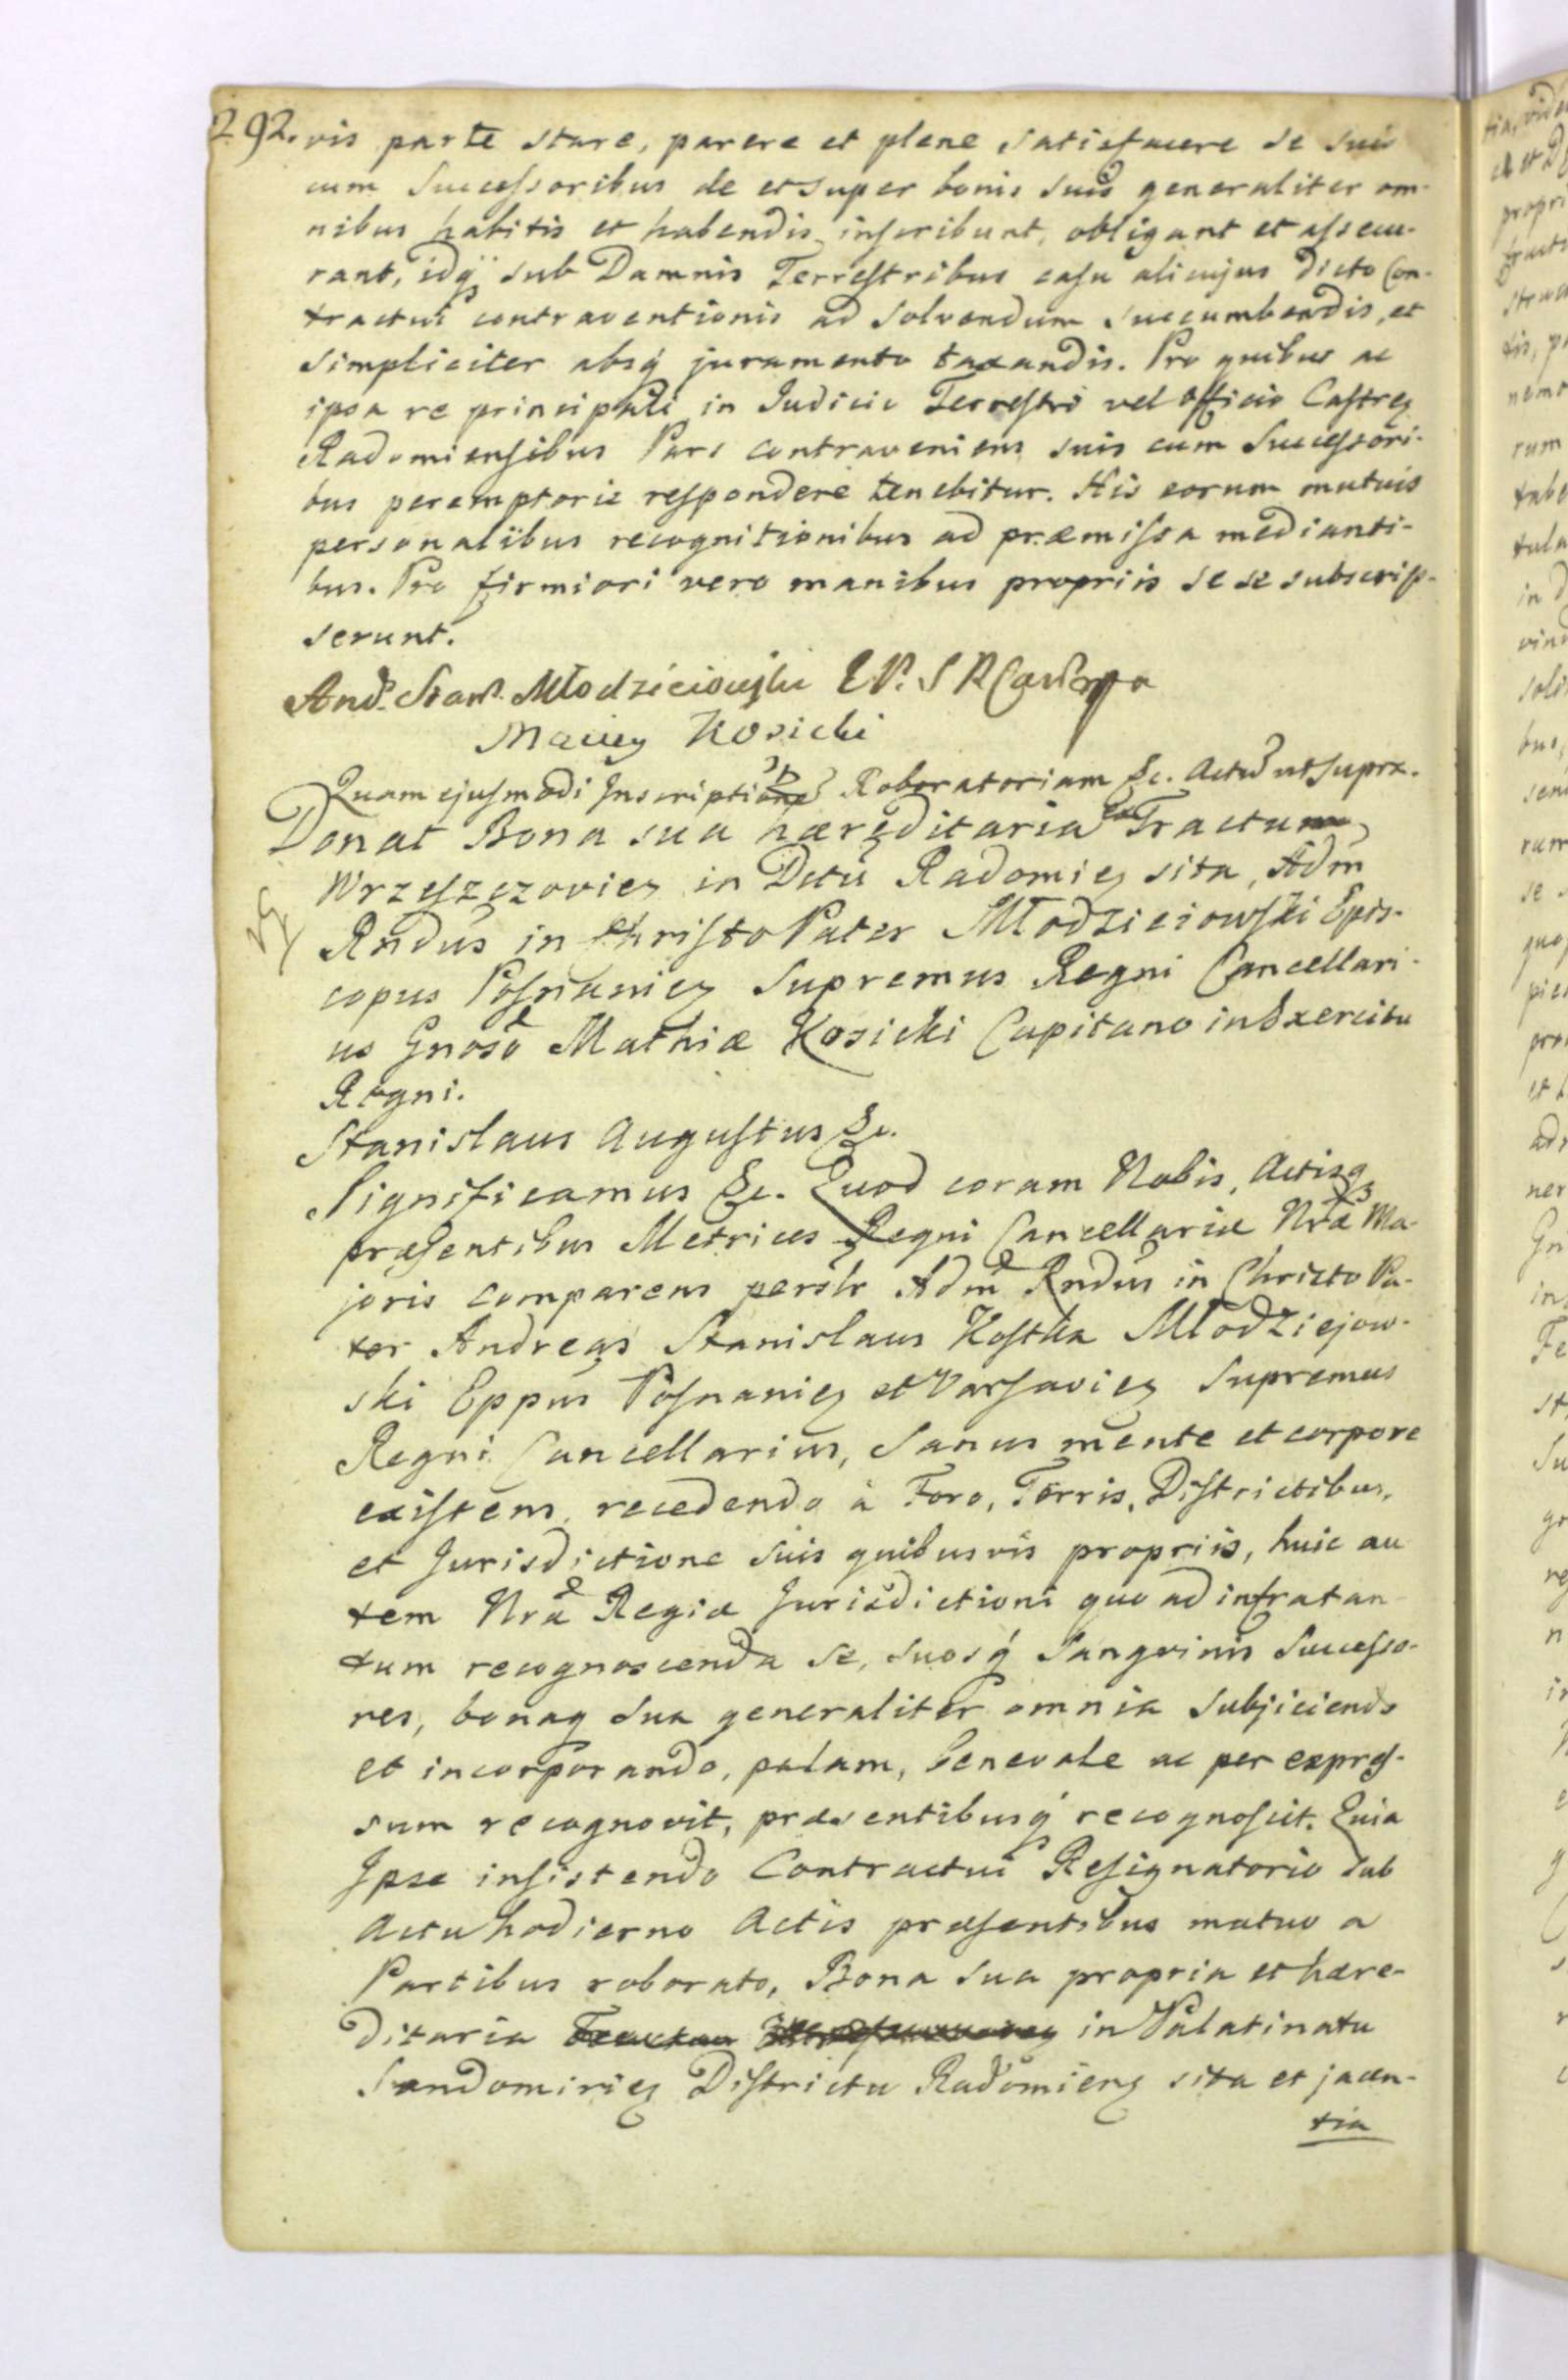 292. vis parte stare, parere et plene satisfacere se suis
cum Successoribus de et super bonis suis generaliter om-
nibus habitis et habendis inscribunt, obligant et assecu-
rant, idq sub Damnis Terrestribus casu alicujus dicto Con-
tractui contraventionis ad solvendum succumbendis, et
simpliciter absq juramento taxandis. Pro quibus ac
ipsa re principali in Judicio Terrestri vel Officio Castren
Radomiensibus Pars contraveniens suis cum Successori-
bus peremptorie respondere tenebitur. His eorum mutuis
personalibus recognitionibus ad præmissa medianti-
bus. Pro firmiori vero manibus propriis se se subscrip-
serunt.
And. Stan. Młodzieiowski E P. S R Can
Maciey Kosicki
Quam ejusmodi Inscription Roboratoriam &c. Actu ut supra.
Donat Bona sua hæreditaria Tractum
Wrzeszczovien in Dctu Radomien sita, Adm
Rndus in Christo Pater Młodzieiowski Epis-
copus Posnanien Supremus Regni Cancellari-
us Gnoso Mathiæ Kosicki Capitano in Exercitu
Regni.
Stanislaus Augustus &c.
Significamus &c. Quod coram Nobis, Actisq
præsentibus Metrices Regni Cancellariæ Nræ Ma-
joris comparens persolr Adm Rndus in Christo Pa-
ter Andreas Stanislaus Kostka Młodziejow-
ski Eppus Posnanien et Varsavien Supremus
Regni Cancellarius, sanus mente et corpore
existens, recedendo à Foro, Terris, Districtibus,
et Jurisdictione suis quibusvis propriis, huic au
tem Nræ Regiæ Jurisdictioni quo ad infra tan
tum recognoscenda se, suosq sangvinis Successo-
res, bonaq sua generaliter omnia subjiciendo
et incorporando, palam, benevole ac per expres-
sum recognovit, præsentibusq recognoscit. Quia
Ipse insistendo Contractui Resignatorio sub
Actu hodierno Actis præsentibus mutuo a
Partibus roborato, Bona sua propria et hære-
ditaria in Palatinatu
Sandomirien Districtu Radomien sita et jacen-
tia